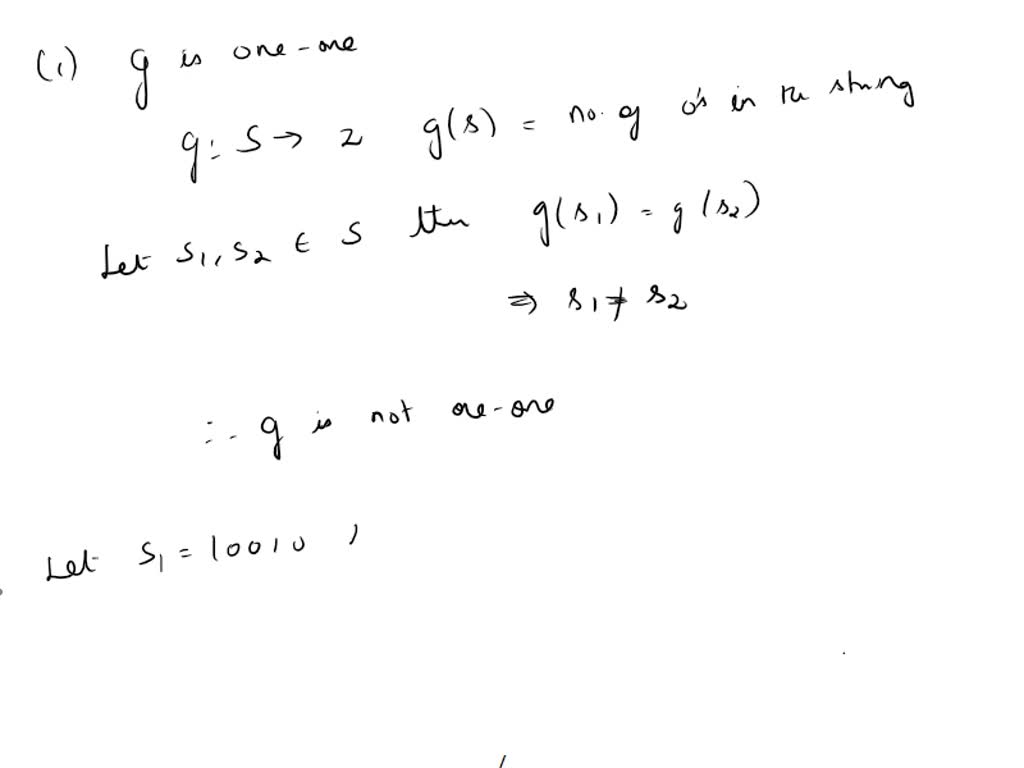 (1) g is one-one
g: S → Z g(s) = no. of 0's in the string
Let s1, s2 ∈ S then g(s1) = g(s2)
⇒ s1 ≠ s2
∴ g is not one-one
Let s1 = 10010 ,